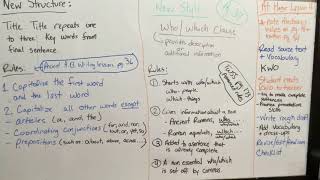 New Structure:
Title: Title repeats one
to three Key words from
final sentence.
Rules:
1 Capitalize the first word
and the last word
2 Capitalize all other words except
- articles (a, and, the)
- Coordinating conjunctions (for, and, nor,
but, or, yet, so)
- Prepositions (such as: about, above, across...)
New Style
Who/Which Clause
- provide description
additional information
Rules:
① Starts with who/which
who - people
which - things
② Gives information about a noun
- Ancient Romans, who
- Roman aqueducts, which
③ Added to a sentence that
is already complete
④ A non essential who/which
is set off by commas
At Home Lesson
Read Source text
+ Vocabulary
KWO
- try to make complete
sentences
- Practice presentation
skills
Write rough draft
Add Vocabulary
+ dress-ups
Checklist